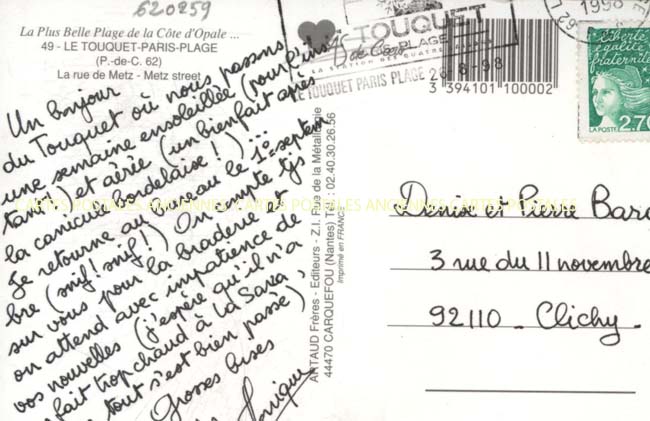 620259
La Plus Belle Plage de la Côte d'Opale ...
49 - LE TOUQUET-PARIS-PLAGE
(P.-de-C. 62)
La rue de Metz - Metz street
Un bonjour
du Touquet où nous passons
une semaine ensoleillée (pour l'ins
tant!) et aérée (un bienfait après
la canicule bordelaise!)...
Je retourne au bureau le 1er septem
bre (snif! snif!) On compte tjs
sur vous pour la braderie et
on attend avec impatience de
vos nouvelles (j'espère qu'il n'a
fait trop chaud à La Saxa,
tout s'est bien passé),
Grosses bises
ARTAUD Frères - Editeurs - Z.I. Rue de la Métallurgie
44470 CARQUEFOU (Nantes) Tél : 02.40.30.26.56
Imprimé en FRANCE
LE TOUQUET
PARIS PLAGE
LE TOUQUET PARIS PLAGE 26-8-98
3 394101 100002
1998
Liberté
égalité
fraternité
LA POSTE
2,70
Denise et Pierre Bar
3 rue du 11 novembre
92110 - Clichy
CARTES POSTALES ANCIENNES CARTES POSTALES ANCIENNES CARTES POSTALES